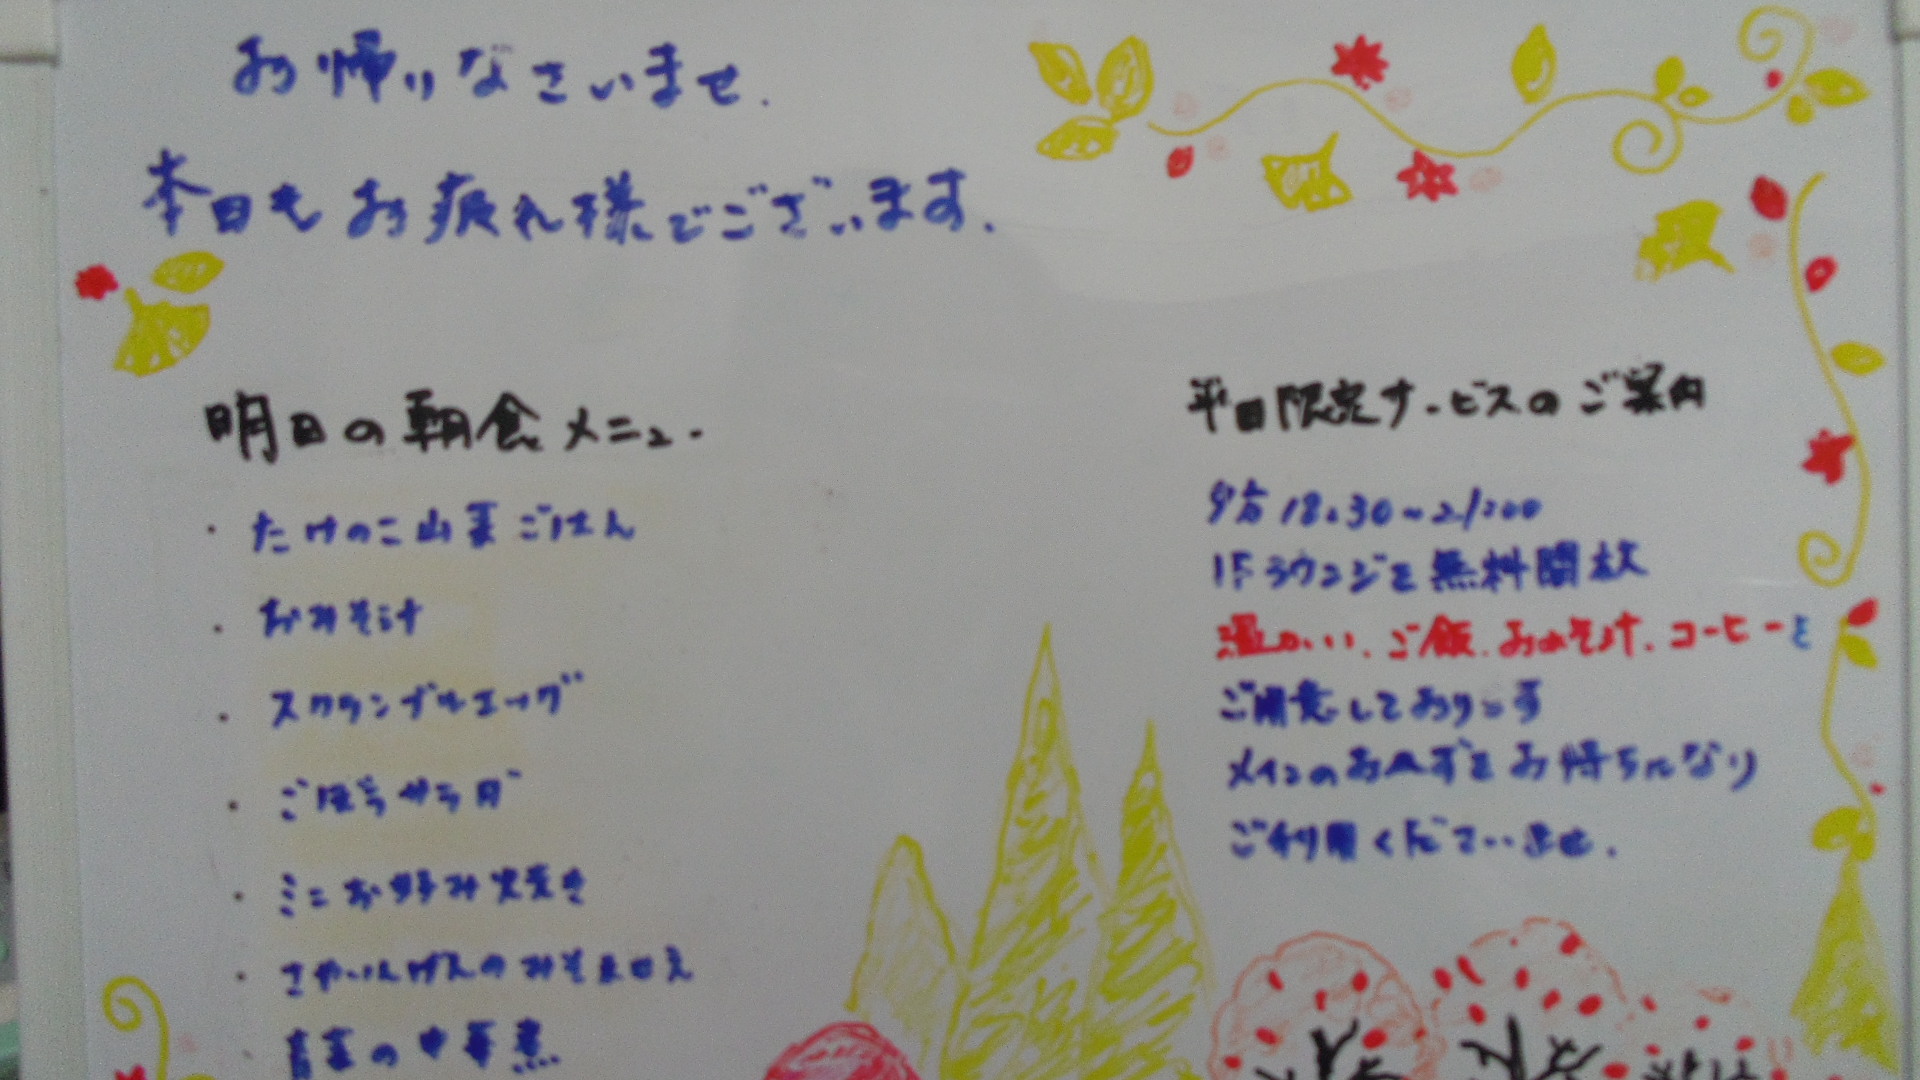 お帰りなさいませ.
本日もお疲れ様でございます.
明日の朝食メニュー
・たけのこ山菜ごはん
・おみそ汁
・スクランブルエッグ
・ごぼうサラダ
・ミニお好み焼き
・さやいんげんのみそまヨえ
・青菜の中華煮
平日限定サービスのご案内
夕方 18:30~21:00
1Fラウンジを無料開放
温かい、ご飯、おみそ汁、コーヒーを
ご用意しております
メインのおかずをお持ちになり
ご利用くださいませ.